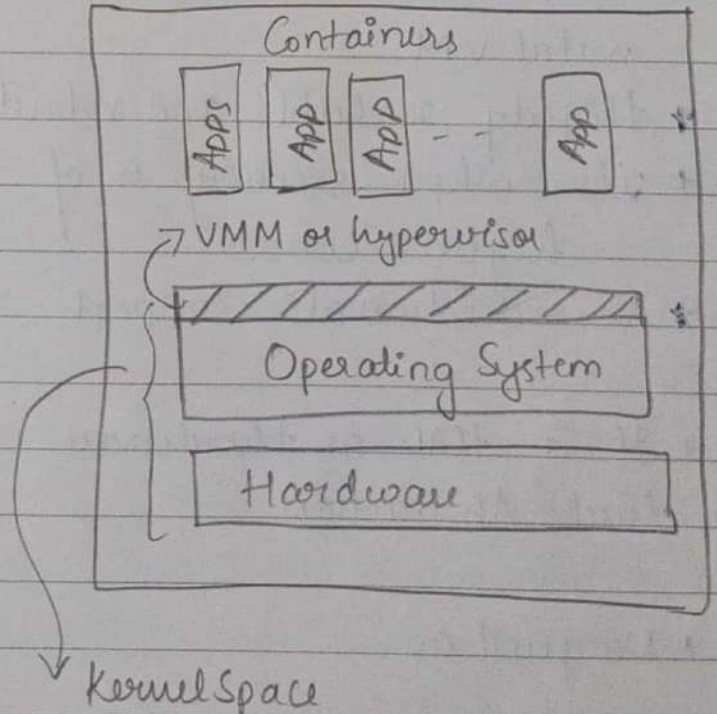 Containers
Apps App App - - App
VMM or hypervisor
Operating System
Hardware
Kernel Space